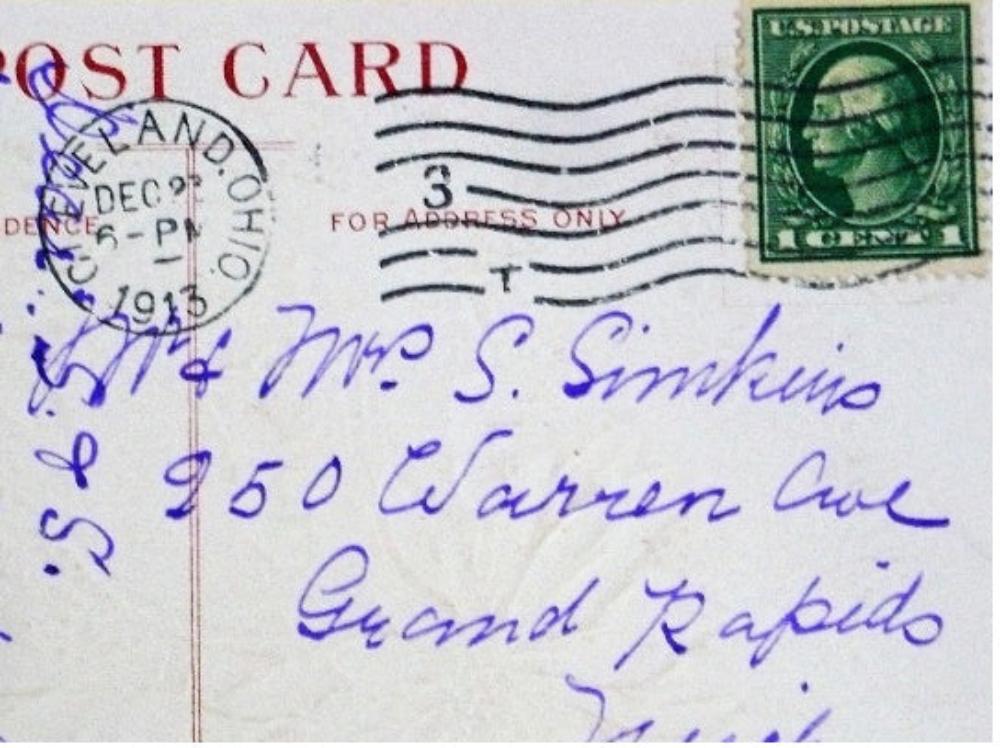 POST CARD
U.S. POSTAGE
CLEVELAND, OHIO.
DEC 2
6-PM
1913
3
T
DENCE
FOR ADDRESS ONLY
1 CENT 1
Mr & Mrs S. Simkins
250 Warren Ave
Grand Rapids
Mich
S. &